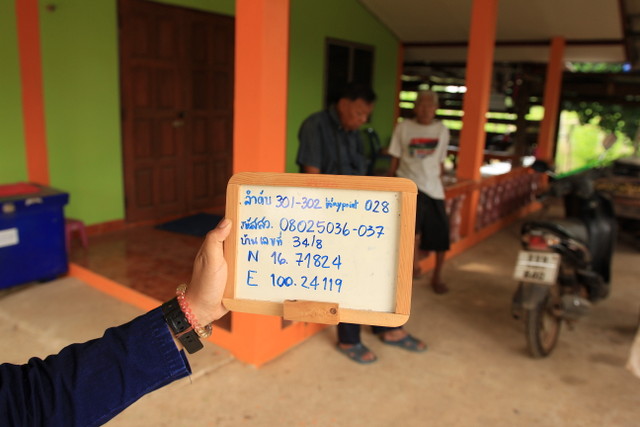 ลำดับ 301-302 Waypoint 028
รหัสสว. 08025036-037
บ้านเลขที่ 34/8
N 16.71824
E 100.24119